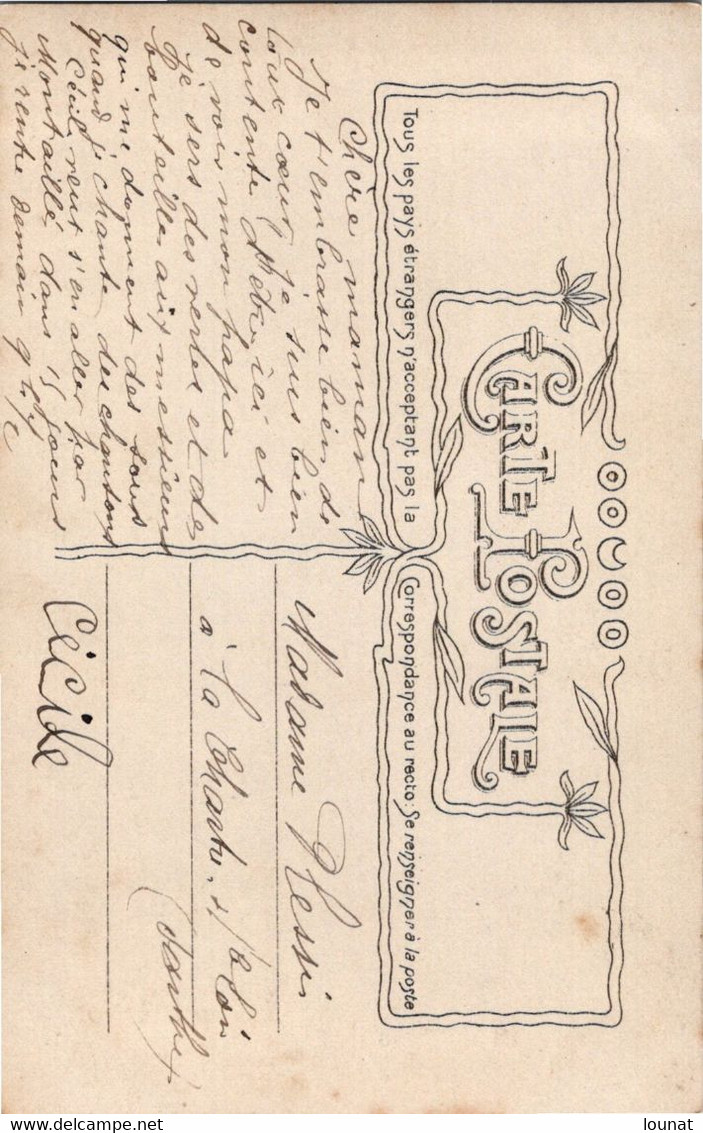 CARTE POSTALE
Tous les pays étrangers n'acceptant pas la Correspondance au recto: Se renseigner à la poste
Chère maman
Je t'embrasse bien de
tout cœur je suis bien
contente d'être ici et
de voir mon papa
Je sers des vertes et des
bouteilles aux messieurs
qui me donnent des sous
quand j'chante des chansons
Cécile veut s'en aller par
Montaillé dans 15 jours
je rentre demain
Cécile
Madame Plessi
à La Chartre s/ le Loir
(Sarthe)
lounat